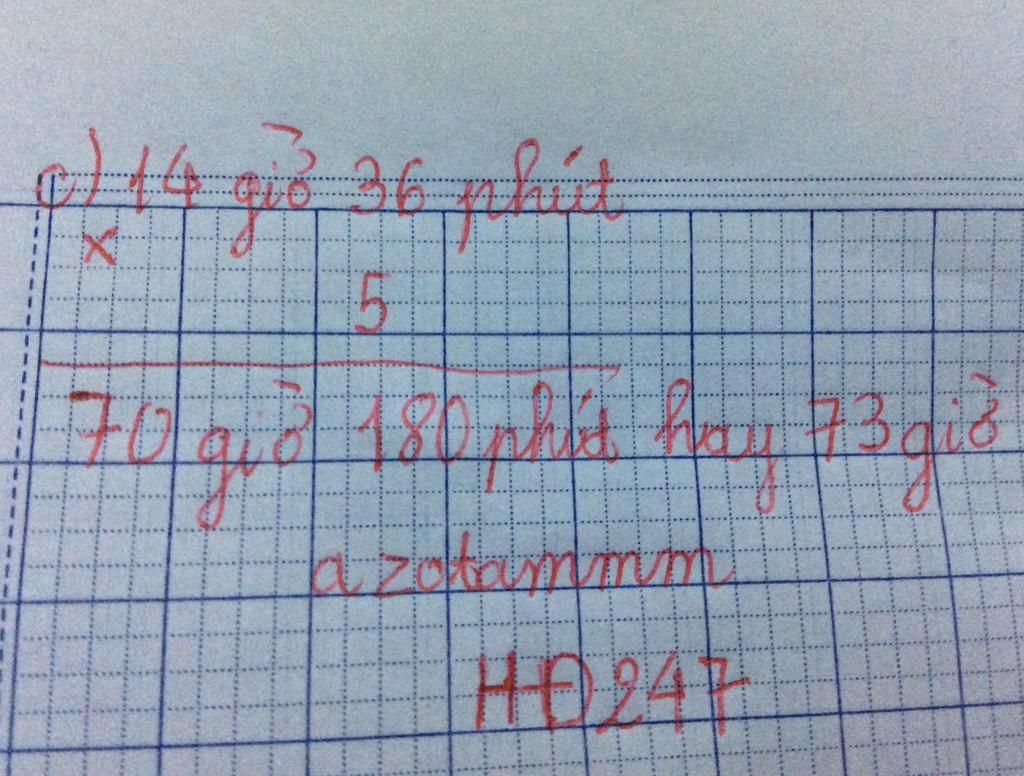 c) 14 giờ 36 phút
x
5
70 giờ 180 phút hay 73 giờ
azotammm
HĐ247